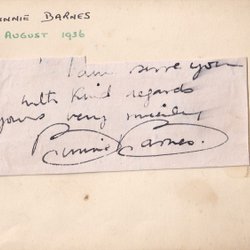 BINNIE BARNES
AUGUST 1936
I am sure you
with kind regards
yours very sincerely
Binnie Barnes.